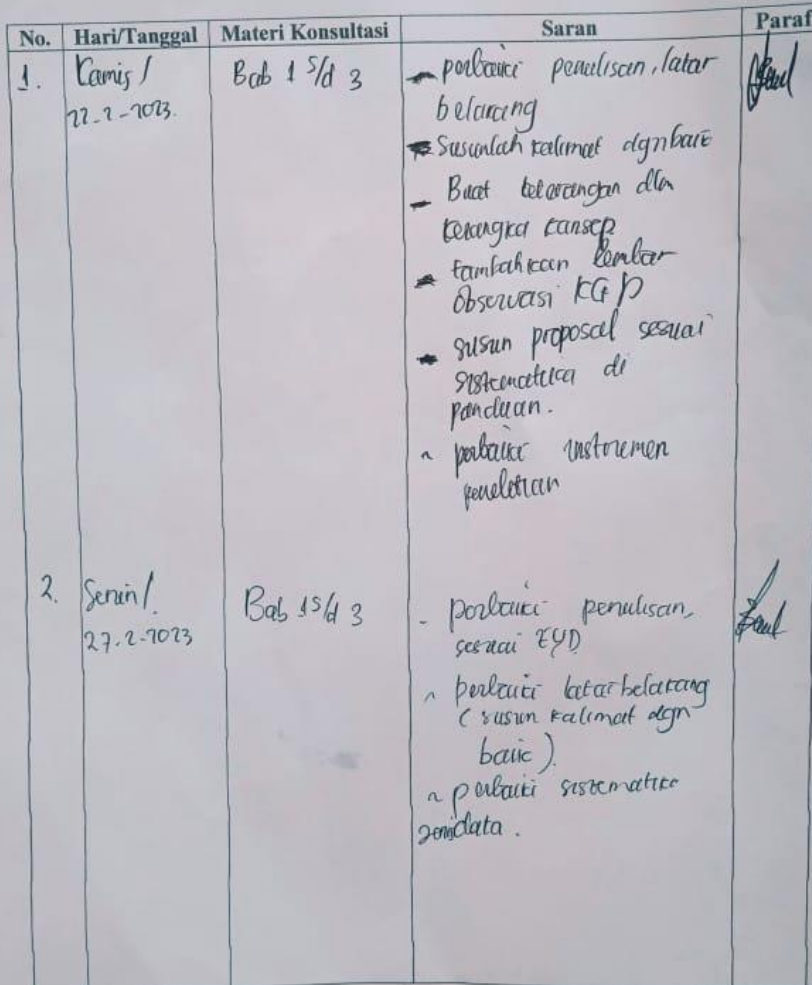 No. Hari/Tanggal Materi Konsultasi Saran Paraf
1. Kamis / Bab 1 s/d 3 - perbaiki penulisan, latar
22-2-2023. belakang
- Susunlah kalimat dgn baik
- Buat keterangan dlm
kerangka konsep
- tambahkan lembar
Observasi KGD
- susun proposal sesuai
sistematika di
panduan.
- perbaiki instrumen
penelitian
2. Senin / Bab 1 s/d 3 - perbaiki penulisan,
27-2-2023 sesuai EYD
- perbaiki latar belakang
(susun kalimat dgn
baik).
- perbaiki sistematika
data.